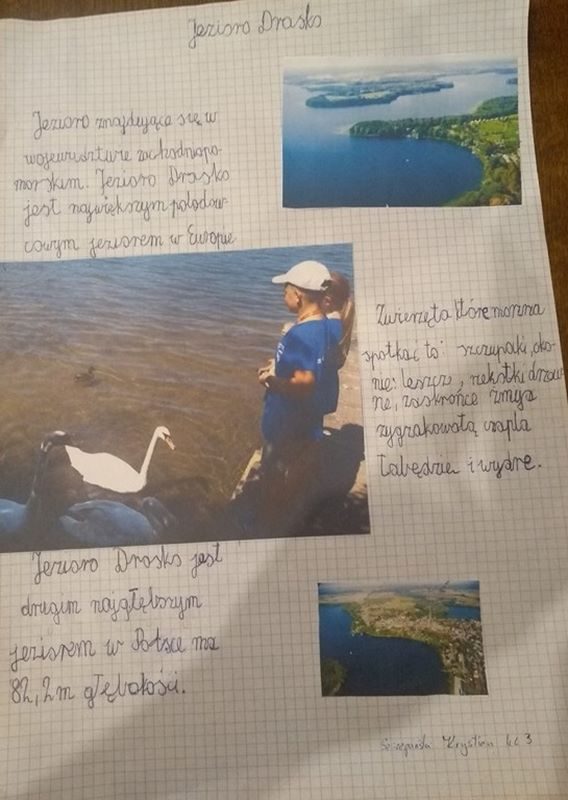 Jezioro Drasko
Jezioro znajdująca się w
województwie zachodniopo-
morskim. Jezioro Drasko
jest największym polodow-
cowym jeziorem w Europie
Zwierzęta które można
spotkać to szczupaki, oko-
nie leszcze, rzekotki drzew
ne, zaskrońce żmyja
zygzakowatą czapla
Łabędzie i wydrę.
Jezioro Drasko jest
drugim najgłębszym
jeziorem w Polsce ma
82,2m głębokości.
Krystian kl 3